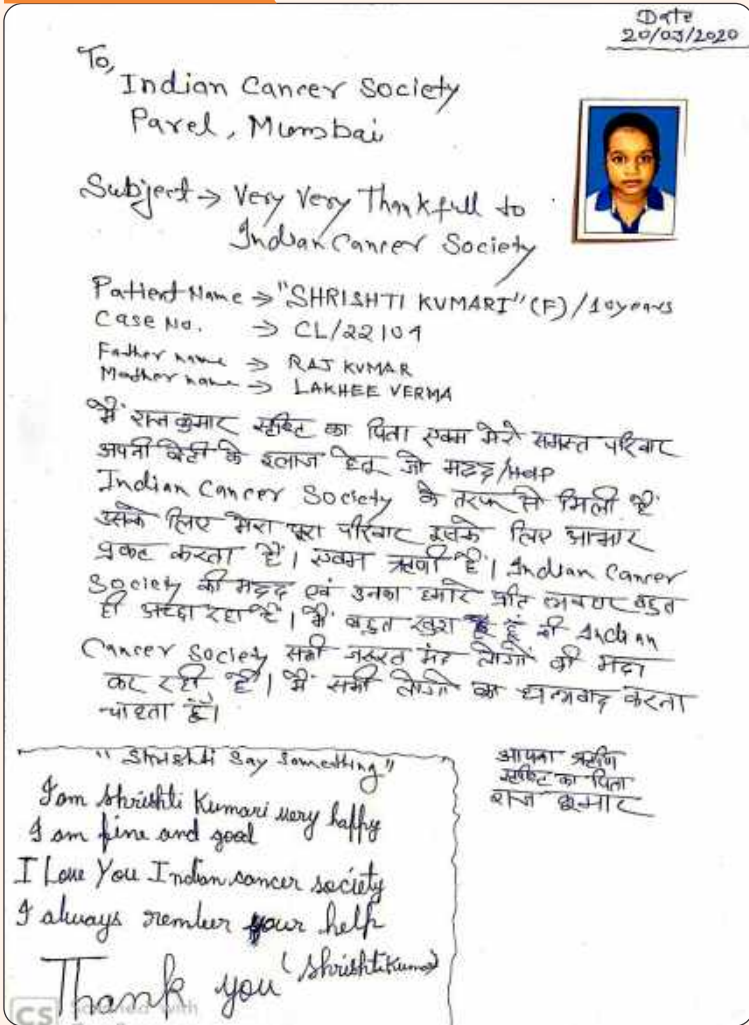 Date
20/03/2020
To,
Indian Cancer Society
Parel, Mumbai
Subject → Very Very Thankfull to
Indian Cancer Society
Patient Name → "SHRISHTI KUMARI" (F) / 10 years
Case No. → CL/22104
Father name → RAJ KUMAR
Mother name → LAKHEE VERMA
मैं राजकुमार सृष्टि का पिता एवम मेरे समस्त परिवार
अपनी बेटी के इलाज हेतू जो मदद/Help
Indian Cancer Society के तरफ से मिली हैं
उसके लिए मेरा पूरा परिवार इसके लिए आभार
प्रकट करता हैं। एवम ऋणी हैं। Indian Cancer
Society की मदद एवं उनका हमारे प्रति बहुत
ही अच्छा रहा हैं। मैं बहुत खुश हूं की Indian
Cancer Society सभी जरूरत मंद लोगों की मदद
कर रही हैं। मैं सभी लोगों का धन्यवाद करता
चाहता हूँ।
आपका ऋणि
सृष्टि का पिता
राज कुमार
"Shrishti Say Something"
I am Shrishti Kumari very happy
I am fine and good
I Love You Indian cancer society
I always rember your help
Thank you (Shrishti Kumari)
CS Scanned with